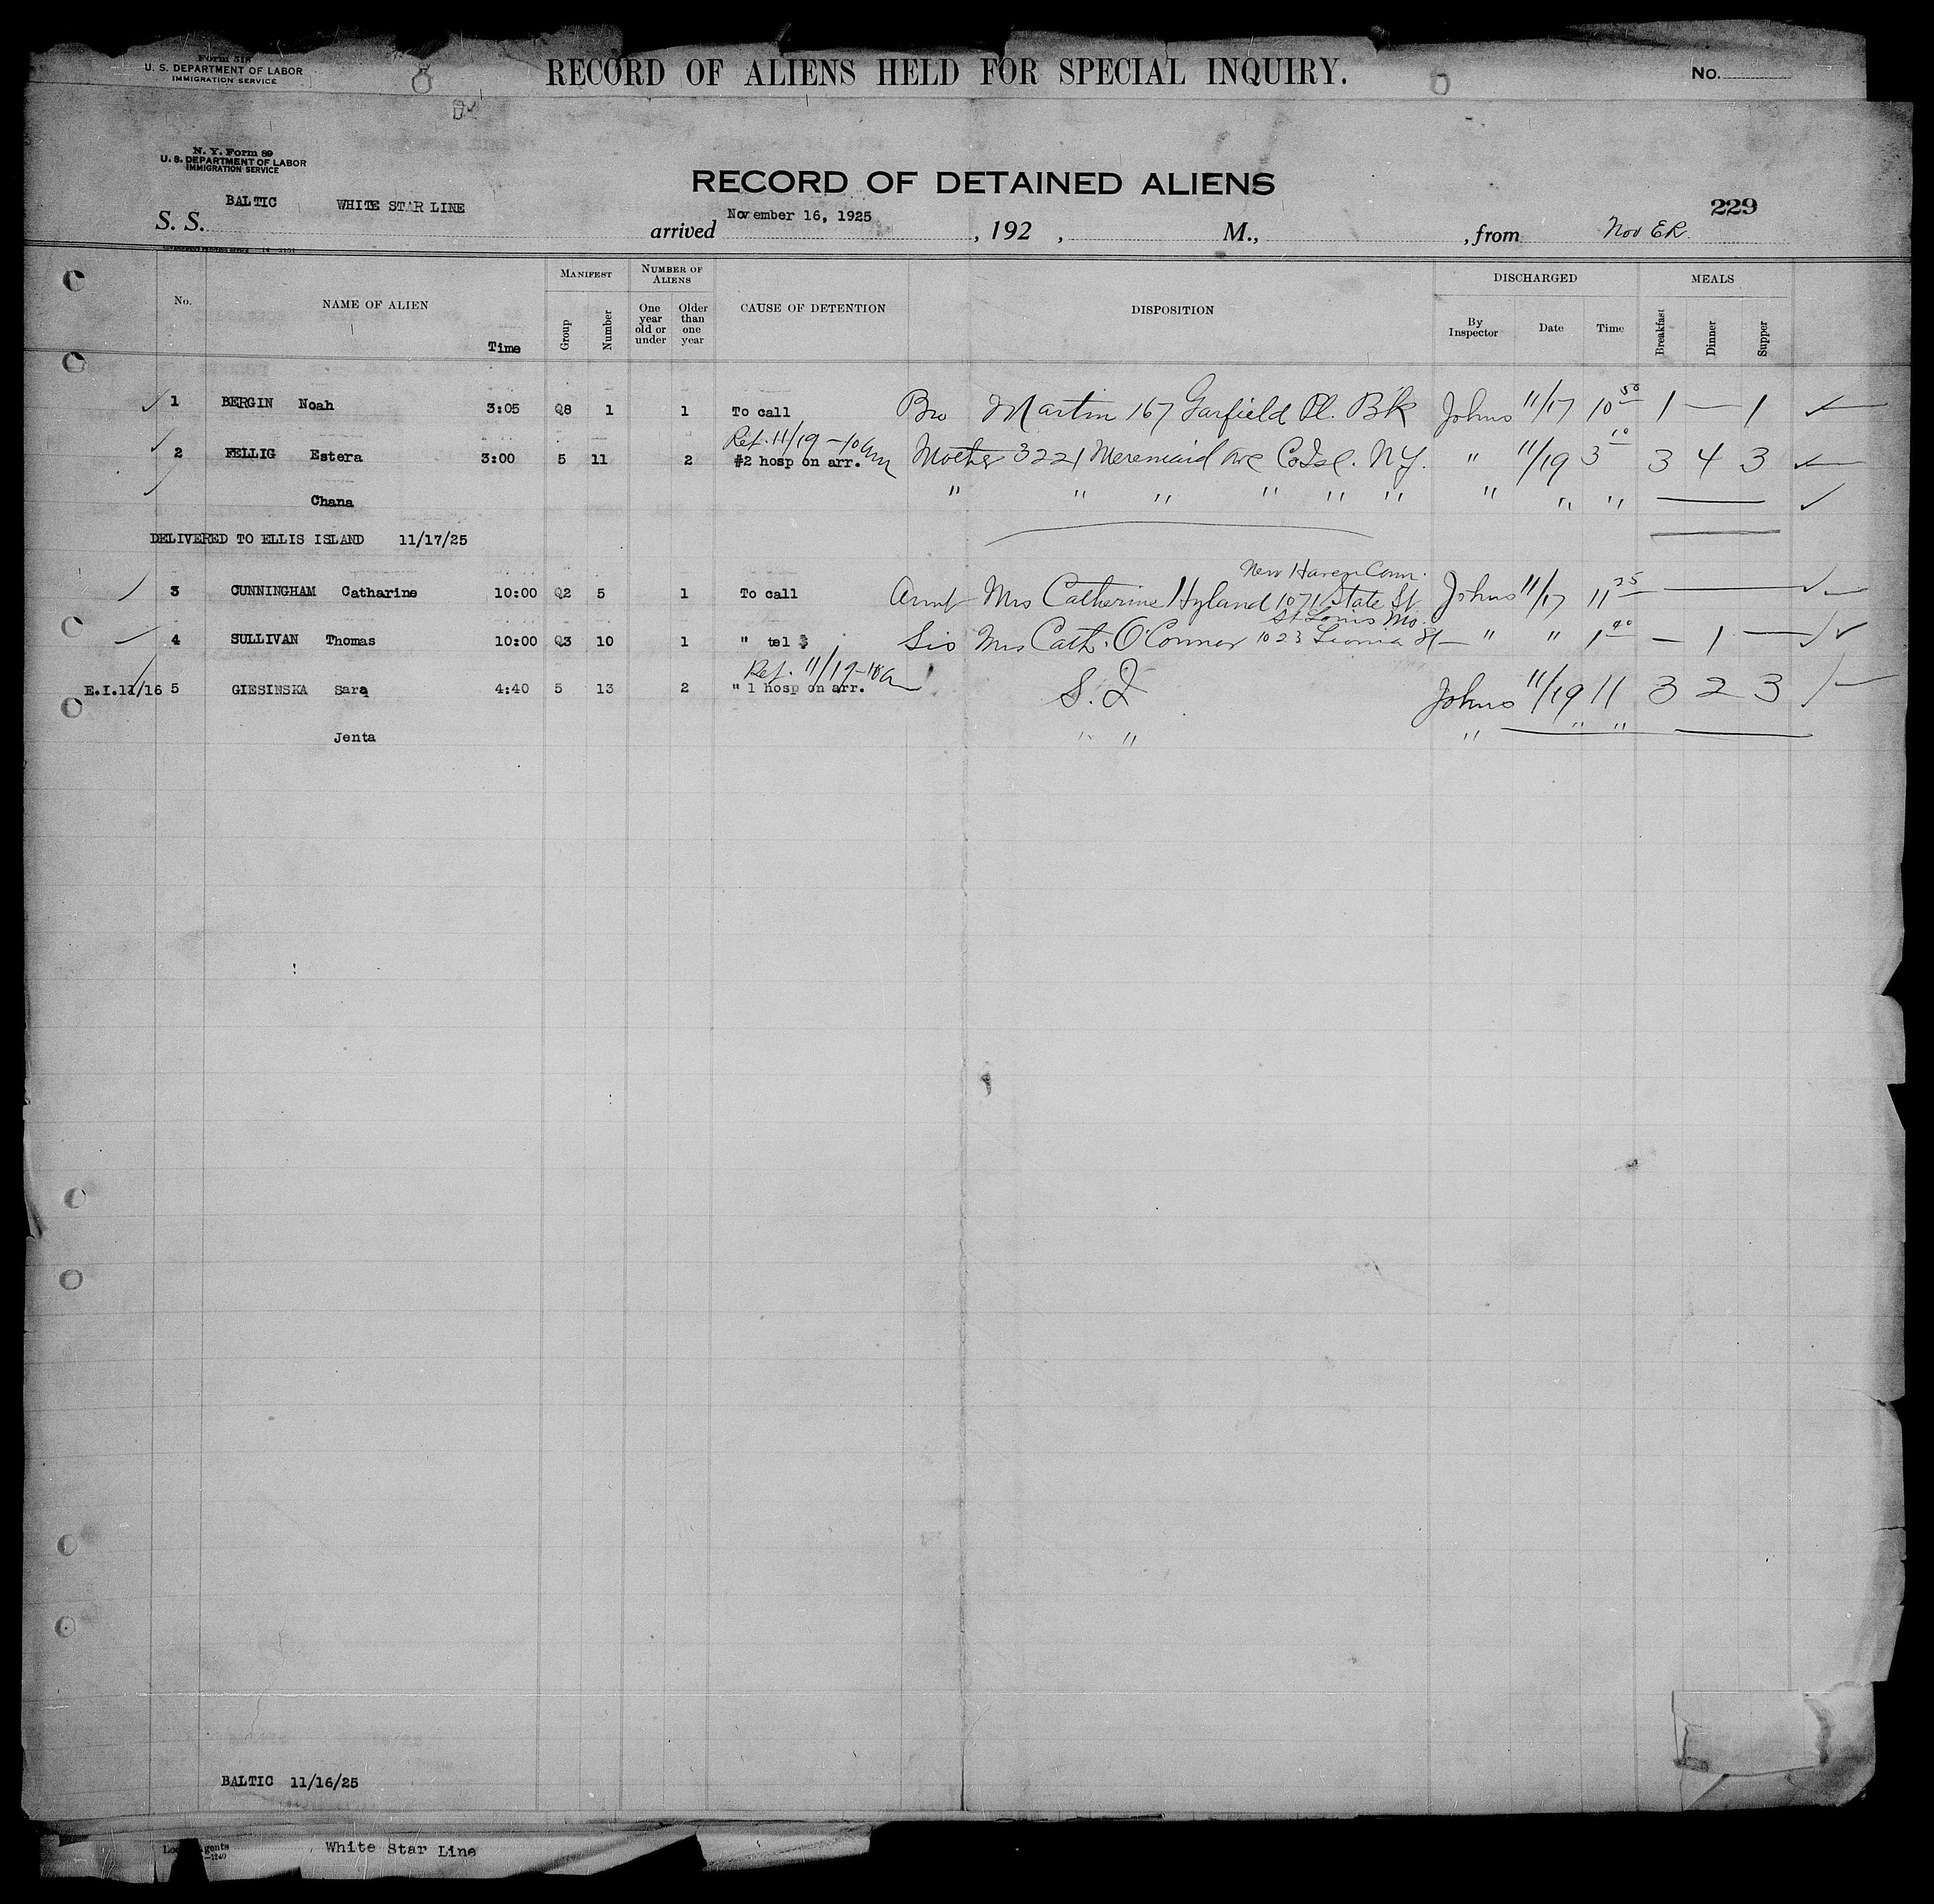 Form 518
U. S. DEPARTMENT OF LABOR
IMMIGRATION SERVICE
RECORD OF ALIENS HELD FOR SPECIAL INQUIRY.
No.
N. Y. Form 89
U. S. DEPARTMENT OF LABOR
IMMIGRATION SERVICE
RECORD OF DETAINED ALIENS
229
S. S. BALTIC WHITE STAR LINE arrived November 16, 1925 , 192 , M., , from Nov ER.
No. NAME OF ALIEN Time MANIFEST Group Number NUMBER OF ALIENS One year old or under Older than one year CAUSE OF DETENTION DISPOSITION DISCHARGED By Inspector Date Time MEALS Breakfast Dinner Supper
1 BERGIN Noah 3:05 Q8 1 1 To call Bro Martin 167 Garfield Pl. Bk Johns 11/17 10 50 1 — 1
Ref. 11/19 - 10am
2 FELLIG Estera 3:00 5 11 2 #2 hosp on arr. Mother 3221 Meremaid Ave Co Isl. N.Y. " 11/19 3 10 3 4 3
Chana " " " " " " " " "
DELIVERED TO ELLIS ISLAND 11/17/25
New Haven Conn.
3 CUNNINGHAM Catharine 10:00 Q2 5 1 To call Aunt Mrs Catherine Hyland 1071 State St. Johns 11/17 11 25 —
St Louis Mo.
4 SULLIVAN Thomas 10:00 Q3 10 1 " tel $ Sis Mrs Cath. O'Connor 1023 St — " " 1 40 — 1 —
Ref. 11/19-10a
E.I.11/16 5 GIESINSKA Sara 4:40 5 13 2 " 1 hosp on arr. S. I Johns 11/19 11 3 2 3
Jenta " " " " "
BALTIC 11/16/25
White Star Line